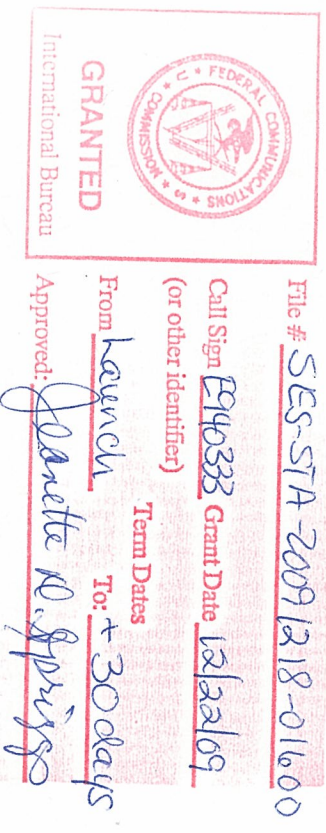 U * S * FEDERAL COMMUNICATIONS COMMISSION *
GRANTED
International Bureau
File # SES-STA-20091218-01600
Call Sign E940333 Grant Date 12/22/09
(or other identifier)
Term Dates
From Launch To: + 30 days
Approved: Jeanette R. Spriggs